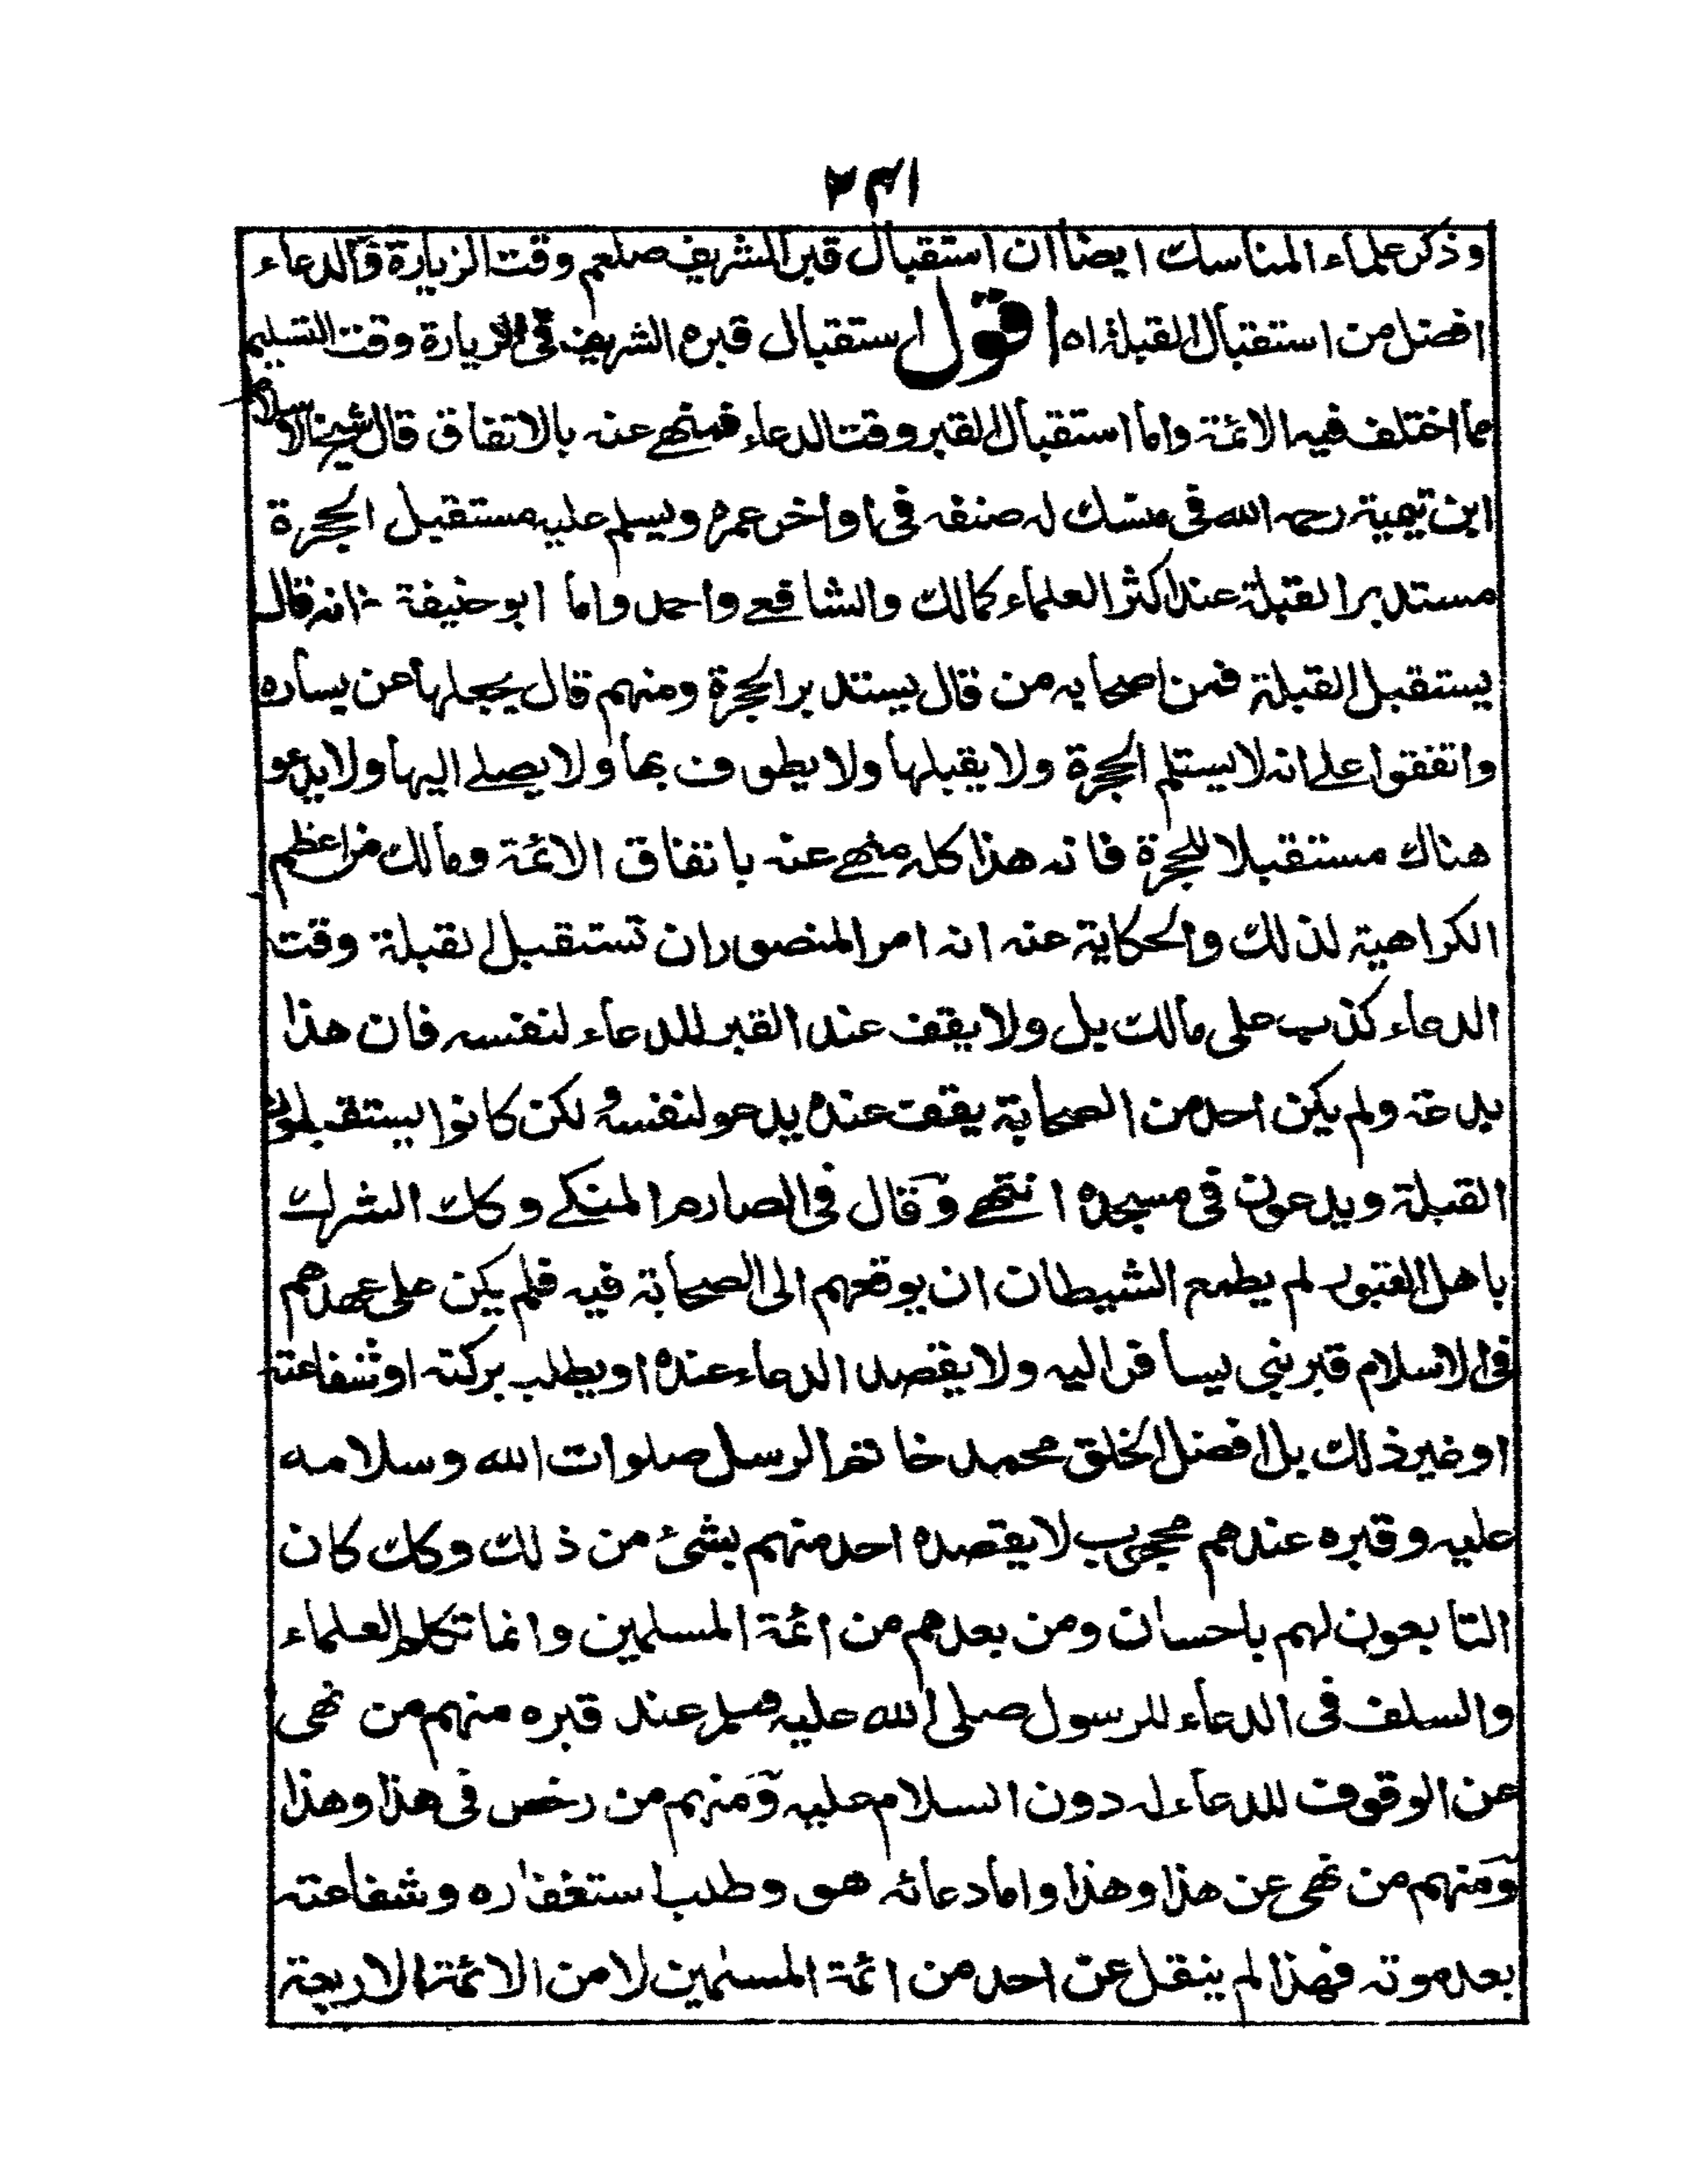 ٢٣١
وذكر علماء المناسك ايضا ان استقبال قبر الشريف صلعم وقت الزيارة والدعاء
افضل من استقبال القبلة اه اقول استقبال قبره الشريف في الزيارة وقت التسليم
مما اختلف فيه الائمة واما استقبال القبر وقت الدعاء فمنهے عنه بالاتفاق قال شيخ الاسلام
ابن تيمية رحمه الله فى منسك له صنفه فى اواخر عمره ويسلم عليه مستقبل الحجرة
مستدبر القبلة عند اكثر العلماء كمالك والشافعے واحمد واما ابو حنيفة انه قال
يستقبل القبلة فمن اصحابه من قال يستدبر الحجرة ومنهم قال يجعلها عن يساره
واتفقوا علے انه لا يستلم الحجرة ولا يقبلها ولا يطوف بها ولا يصلے اليها ولا يدعو
هناك مستقبلا للحجرة فانه هذا كله منهے عنه باتفاق الائمة ومالك من اعظم
الكراهية لذلك والحكاية عنه انه امر المنصور ان تستقبل لقبلة وقت
الدعاء كذب على مالك بل ولا يقف عند القبر للدعاء لنفسه فان هذا
بدعة ولم يكن احد من الصحابة يقف عنده يدعو لنفسه ولكن كانوا يستقبلون
القبلة ويدعون فى مسجده انتهے وقال فى الصارم المنكے وكك الشرك
باهل القبور لم يطمع الشيطان ان يوقعهم الى الصحابة فيه فلم يكن على عهدهم
فى الاسلام قبر نبى يسافر اليه ولا يقصد الدعاء عنده او يطلب بركته او شفاعته
او غير ذلك بل افضل الخلق محمد خاتم الرسل صلوات الله وسلامه
عليه وقبره عندهم محجوب لا يقصده احد منهم بشئ من ذلك وكك كان
التابعون لهم باحسان ومن بعدهم من ائمة المسلمين وانما تكلم العلماء
والسلف فى الدعاء للرسول صلى الله عليه وسلم عند قبره منهم من نهى
عن الوقوف للدعاء له دون السلام عليه ومنهم من رخص فى هذا وهذا
ومنهم من نهى عن هذا وهذا واما دعائه هو وطلب استغفاره وشفاعته
بعد موته فهذا لم ينقل عن احد من ائمة المسلمين لا من الائمة الاربعة